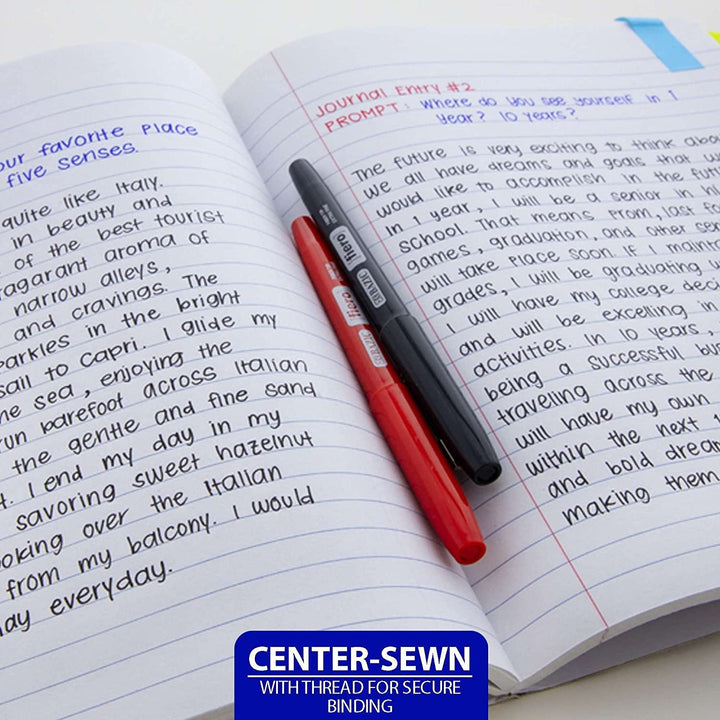 our favorite Place
five senses.
quite like Italy.
in beauty and
of the best tourist
ragarant aroma of
narrow alleys,
and cravings. The
arkles in the bright
sail to Capri. I glide my
he sea, enjoying the
run barefoot across Italian
the gentle and fine sand
. I end my day in my
savoring sweet hazelnut
ooking over the Italian
from my balcony. I would
day everyday.
Journal Entry #2
PROMPT: Where do you see yourself in 1
year? 10 years?
The future is very exciting to think abo
We all have dreams and goals that w
would like to accomplish in the futu
In 1 year, I will be a senior in hi
school. That means Prom, last fo
games, graduation, and other sen
will take Place soon. If I maint
grades, I will be graduating
I will have my college deci
and will be excelling in
activities. In 10 years,
being a successful bu
traveling across the
will have my own
within the next
and bold dream
making them
fiero BAZIC
fiero BAZIC
CENTER-SEWN
WITH THREAD FOR SECURE
BINDING